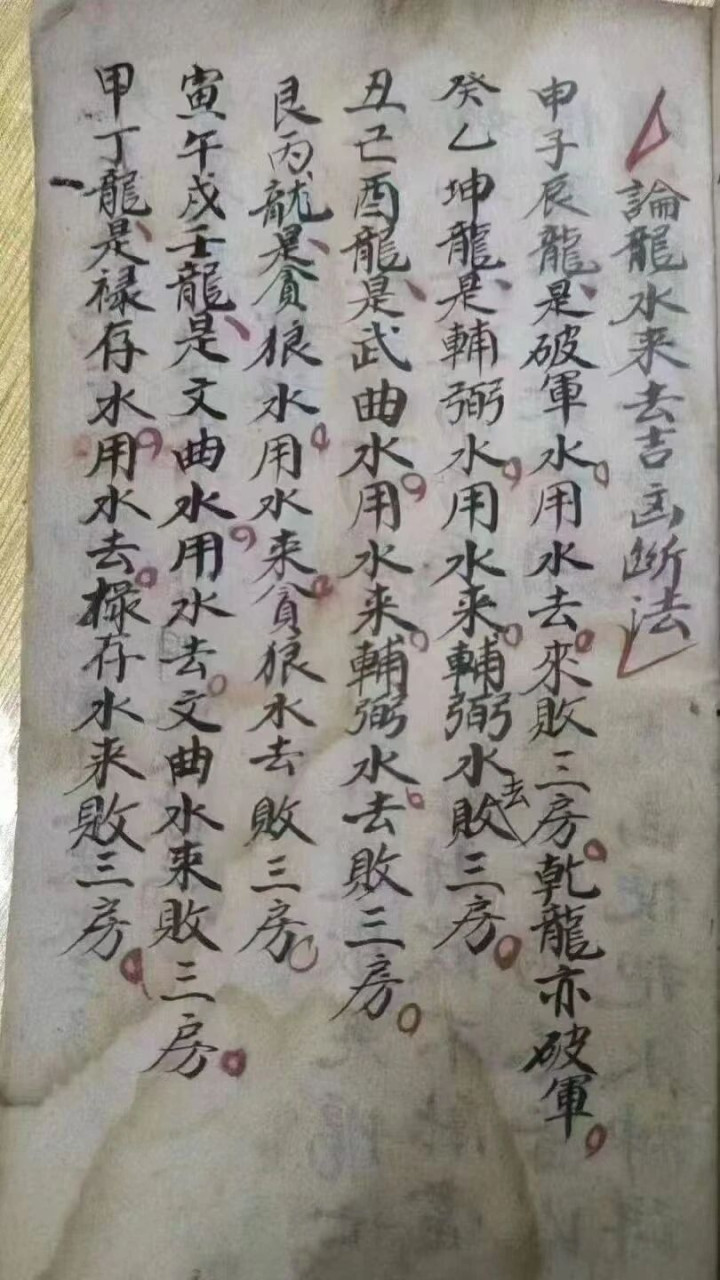 論龍水来去吉凶断法
申子辰龍是破軍水用水去來敗三房乾龍亦破軍
癸乙坤龍是輔弼水用水来輔弼水去敗三房
丑己酉龍是武曲水用水来輔弼水去敗三房
艮丙龍是貪狼水用水来貪狼水去敗三房
寅午戌壬龍是文曲水用水去文曲水來敗三房
甲丁龍是祿存水用水去祿存水来敗三房